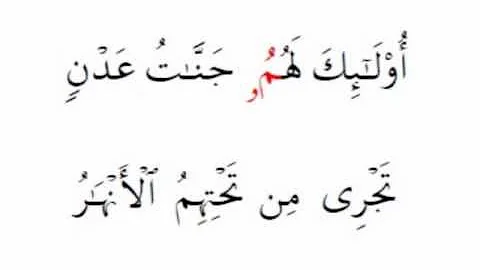 أُوْلَـٰٓئِكَ لَهُمُۥ جَنَّـٰتُ عَدْنٍ
تَجْرِى مِن تَحْتِهِمُ ٱلْأَنْهَـٰرُ